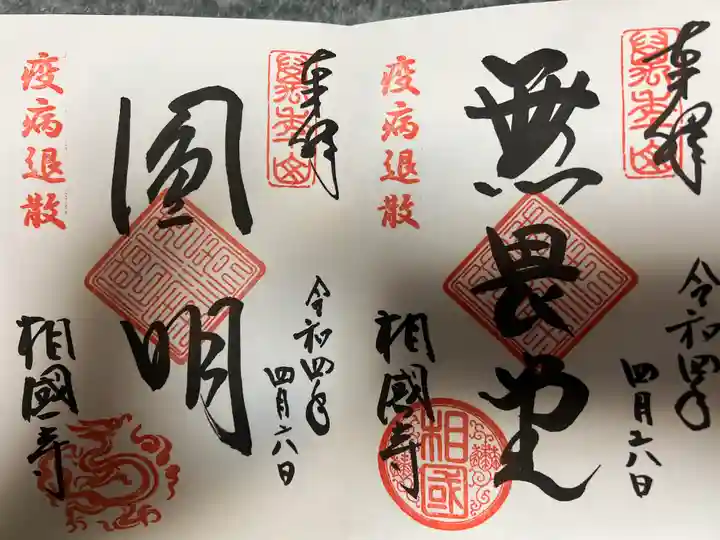 奉拝
無畏堂
疫病退散
令和四年
四月六日
相國寺
相国
奉拝
圓明
疫病退散
令和四年
四月六日
相國寺